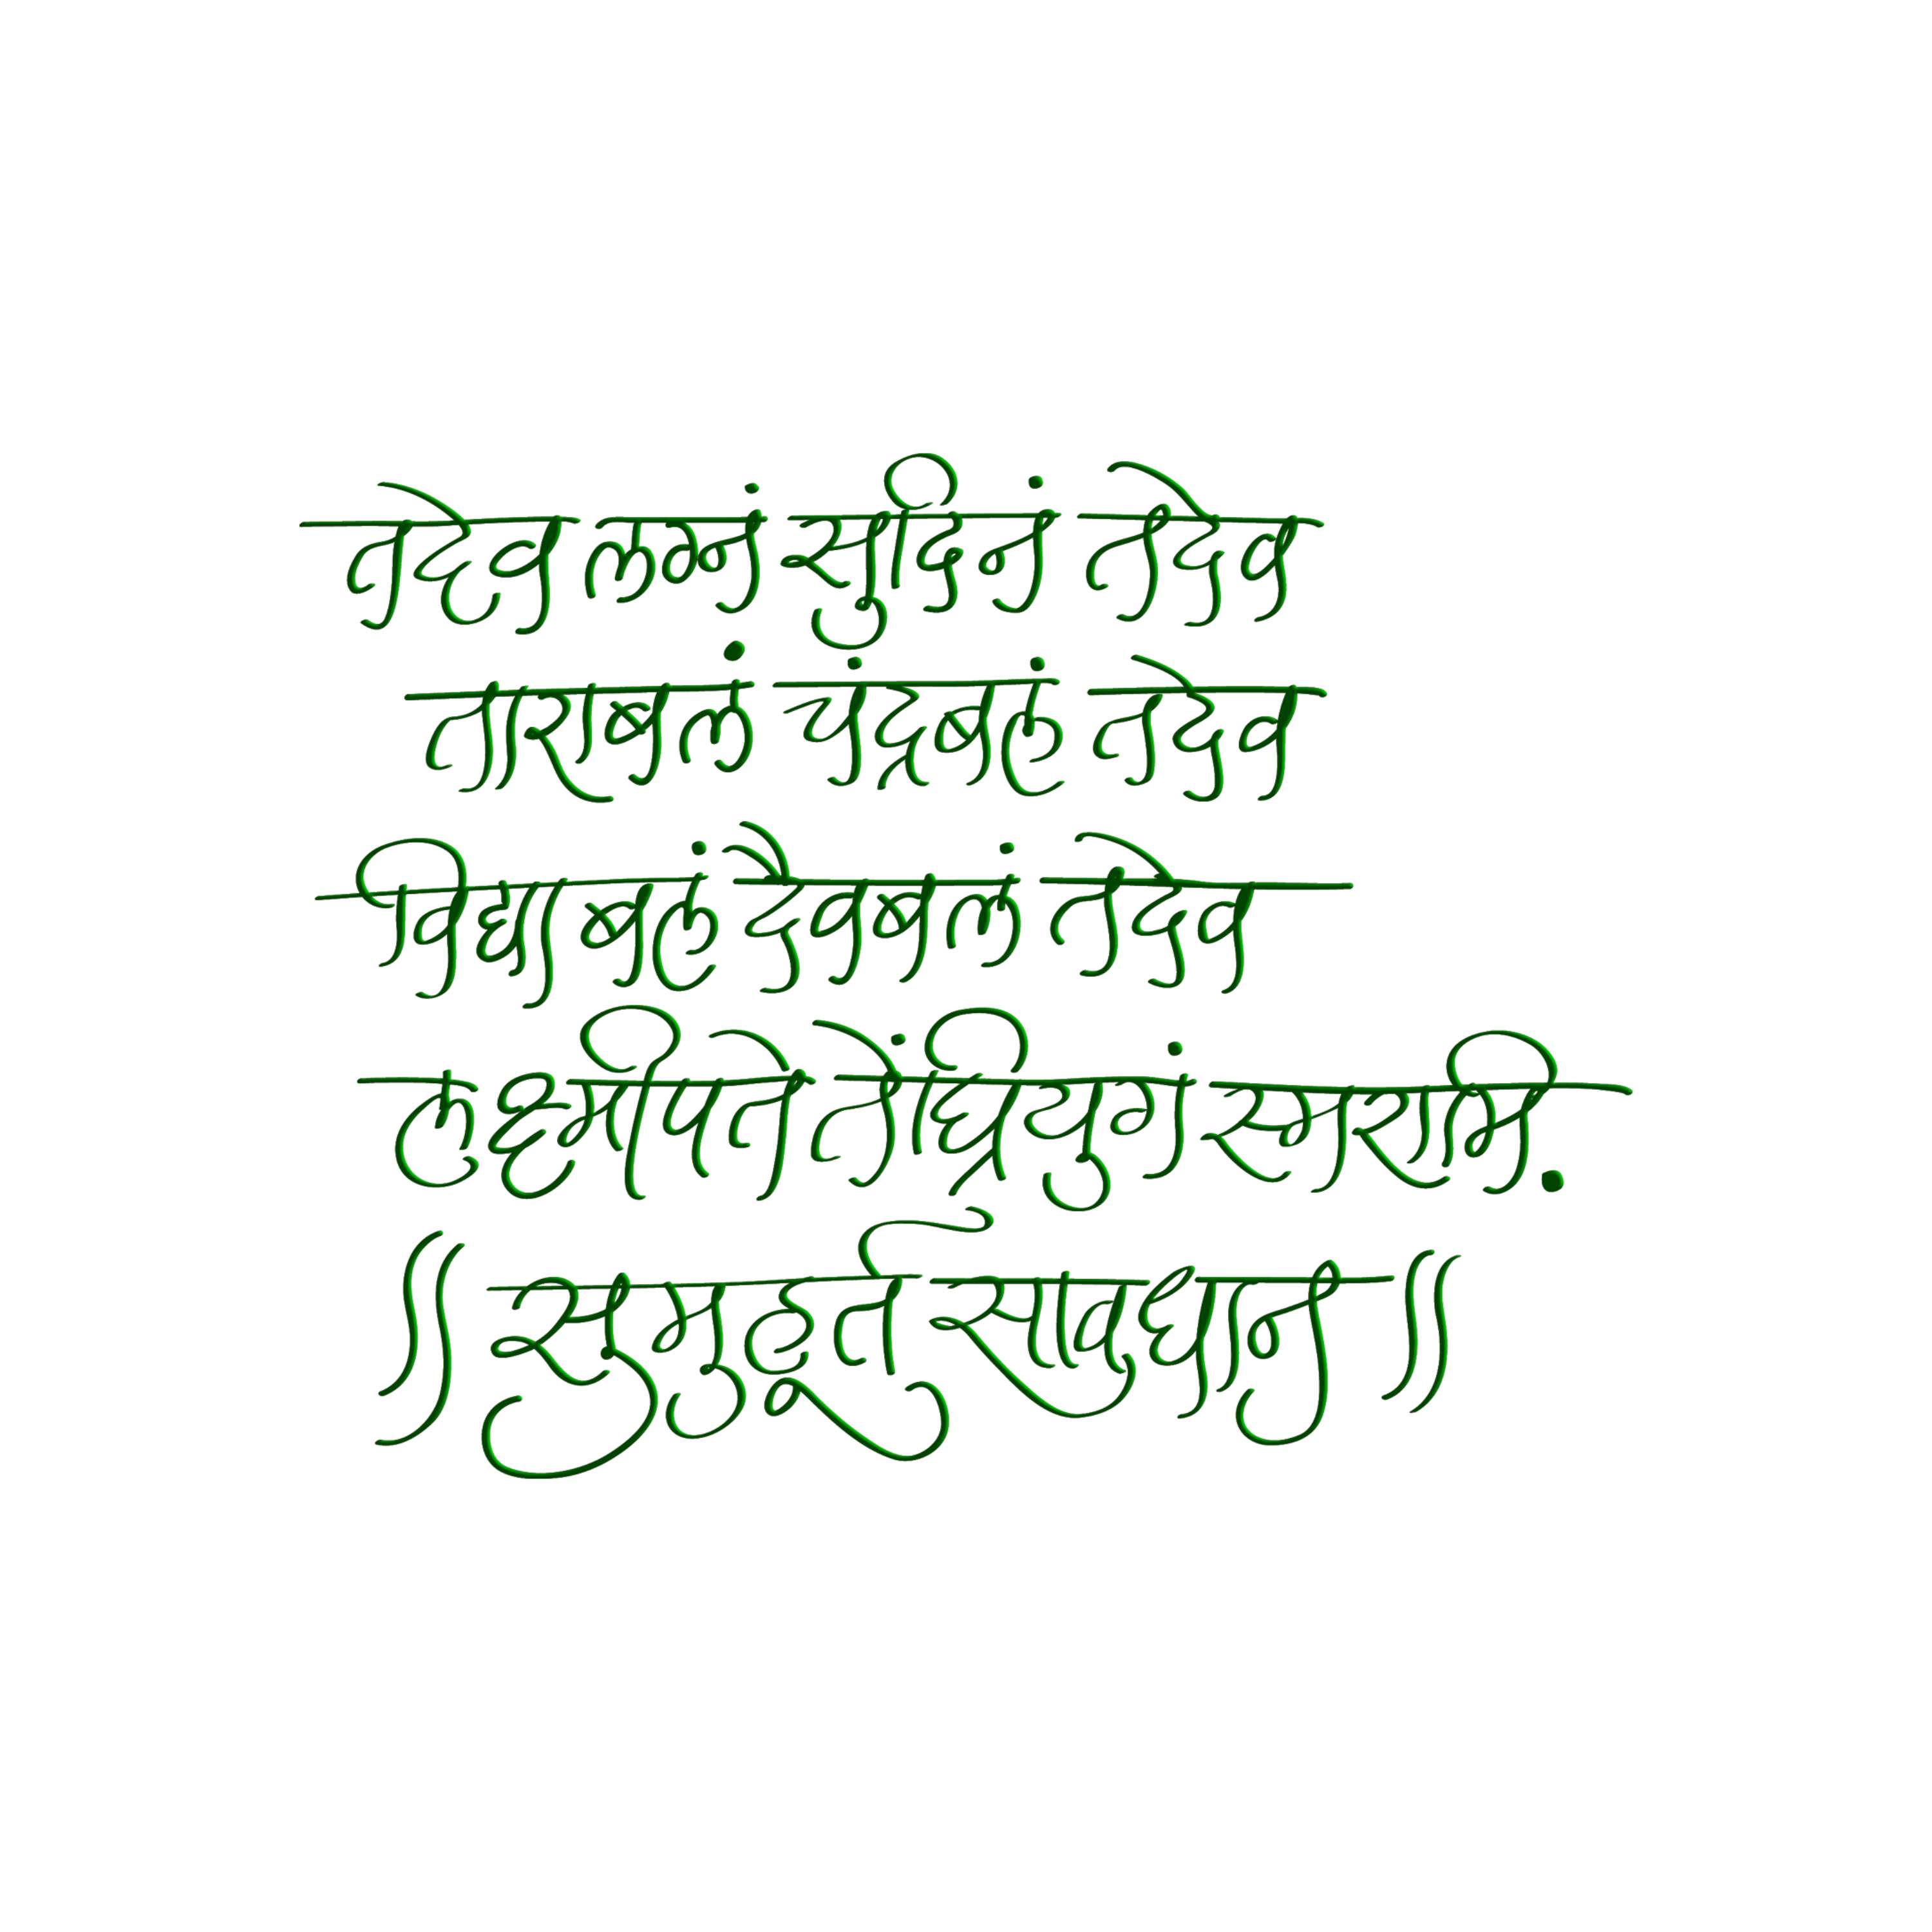 तदेव लग्नं सुदिनं तदेव
ताराबलं चंद्रबलं तदेव
विद्याबलं दैवबलं तदेव
लक्ष्मीपते तेंघ्रियुगं स्मरामि.
॥ सुमुहूर्त सावधान ॥